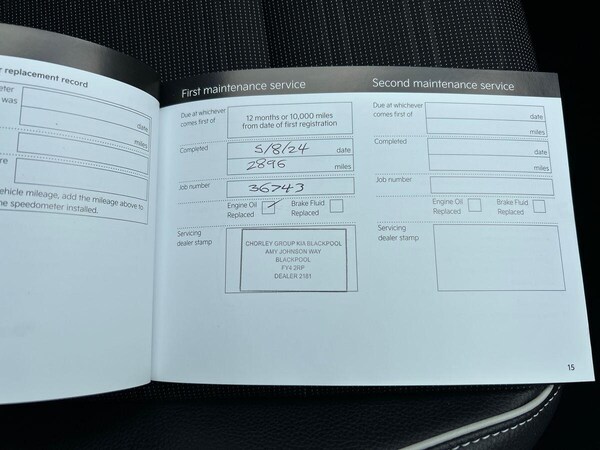 r replacement record
was
date
miles
date
re
ehicle mileage, add the mileage above to
he speedometer installed.
First maintenance service
Due at whichever
comes first of
12 months or 10,000 miles
from date of first registration
Completed
5/8/24 date
2896 miles
Job number
36743
Engine Oil
Replaced
Brake Fluid
Replaced
Servicing
dealer stamp
CHORLEY GROUP KIA BLACKPOOL
AMY JOHNSON WAY
BLACKPOOL
FY4 2RP
DEALER 2181
Second maintenance service
Due at whichever
comes first of
date
miles
Completed
date
miles
Job number
Engine Oil
Replaced
Brake Fluid
Replaced
Servicing
dealer stamp
15